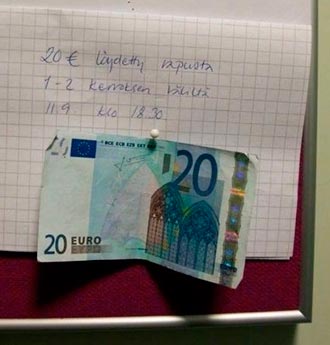 20 € löydetty rapusta
1-2 kerroksen väliltä
11.9. klo 18.30
BCE ECB EZB EKT
20
20 EURO